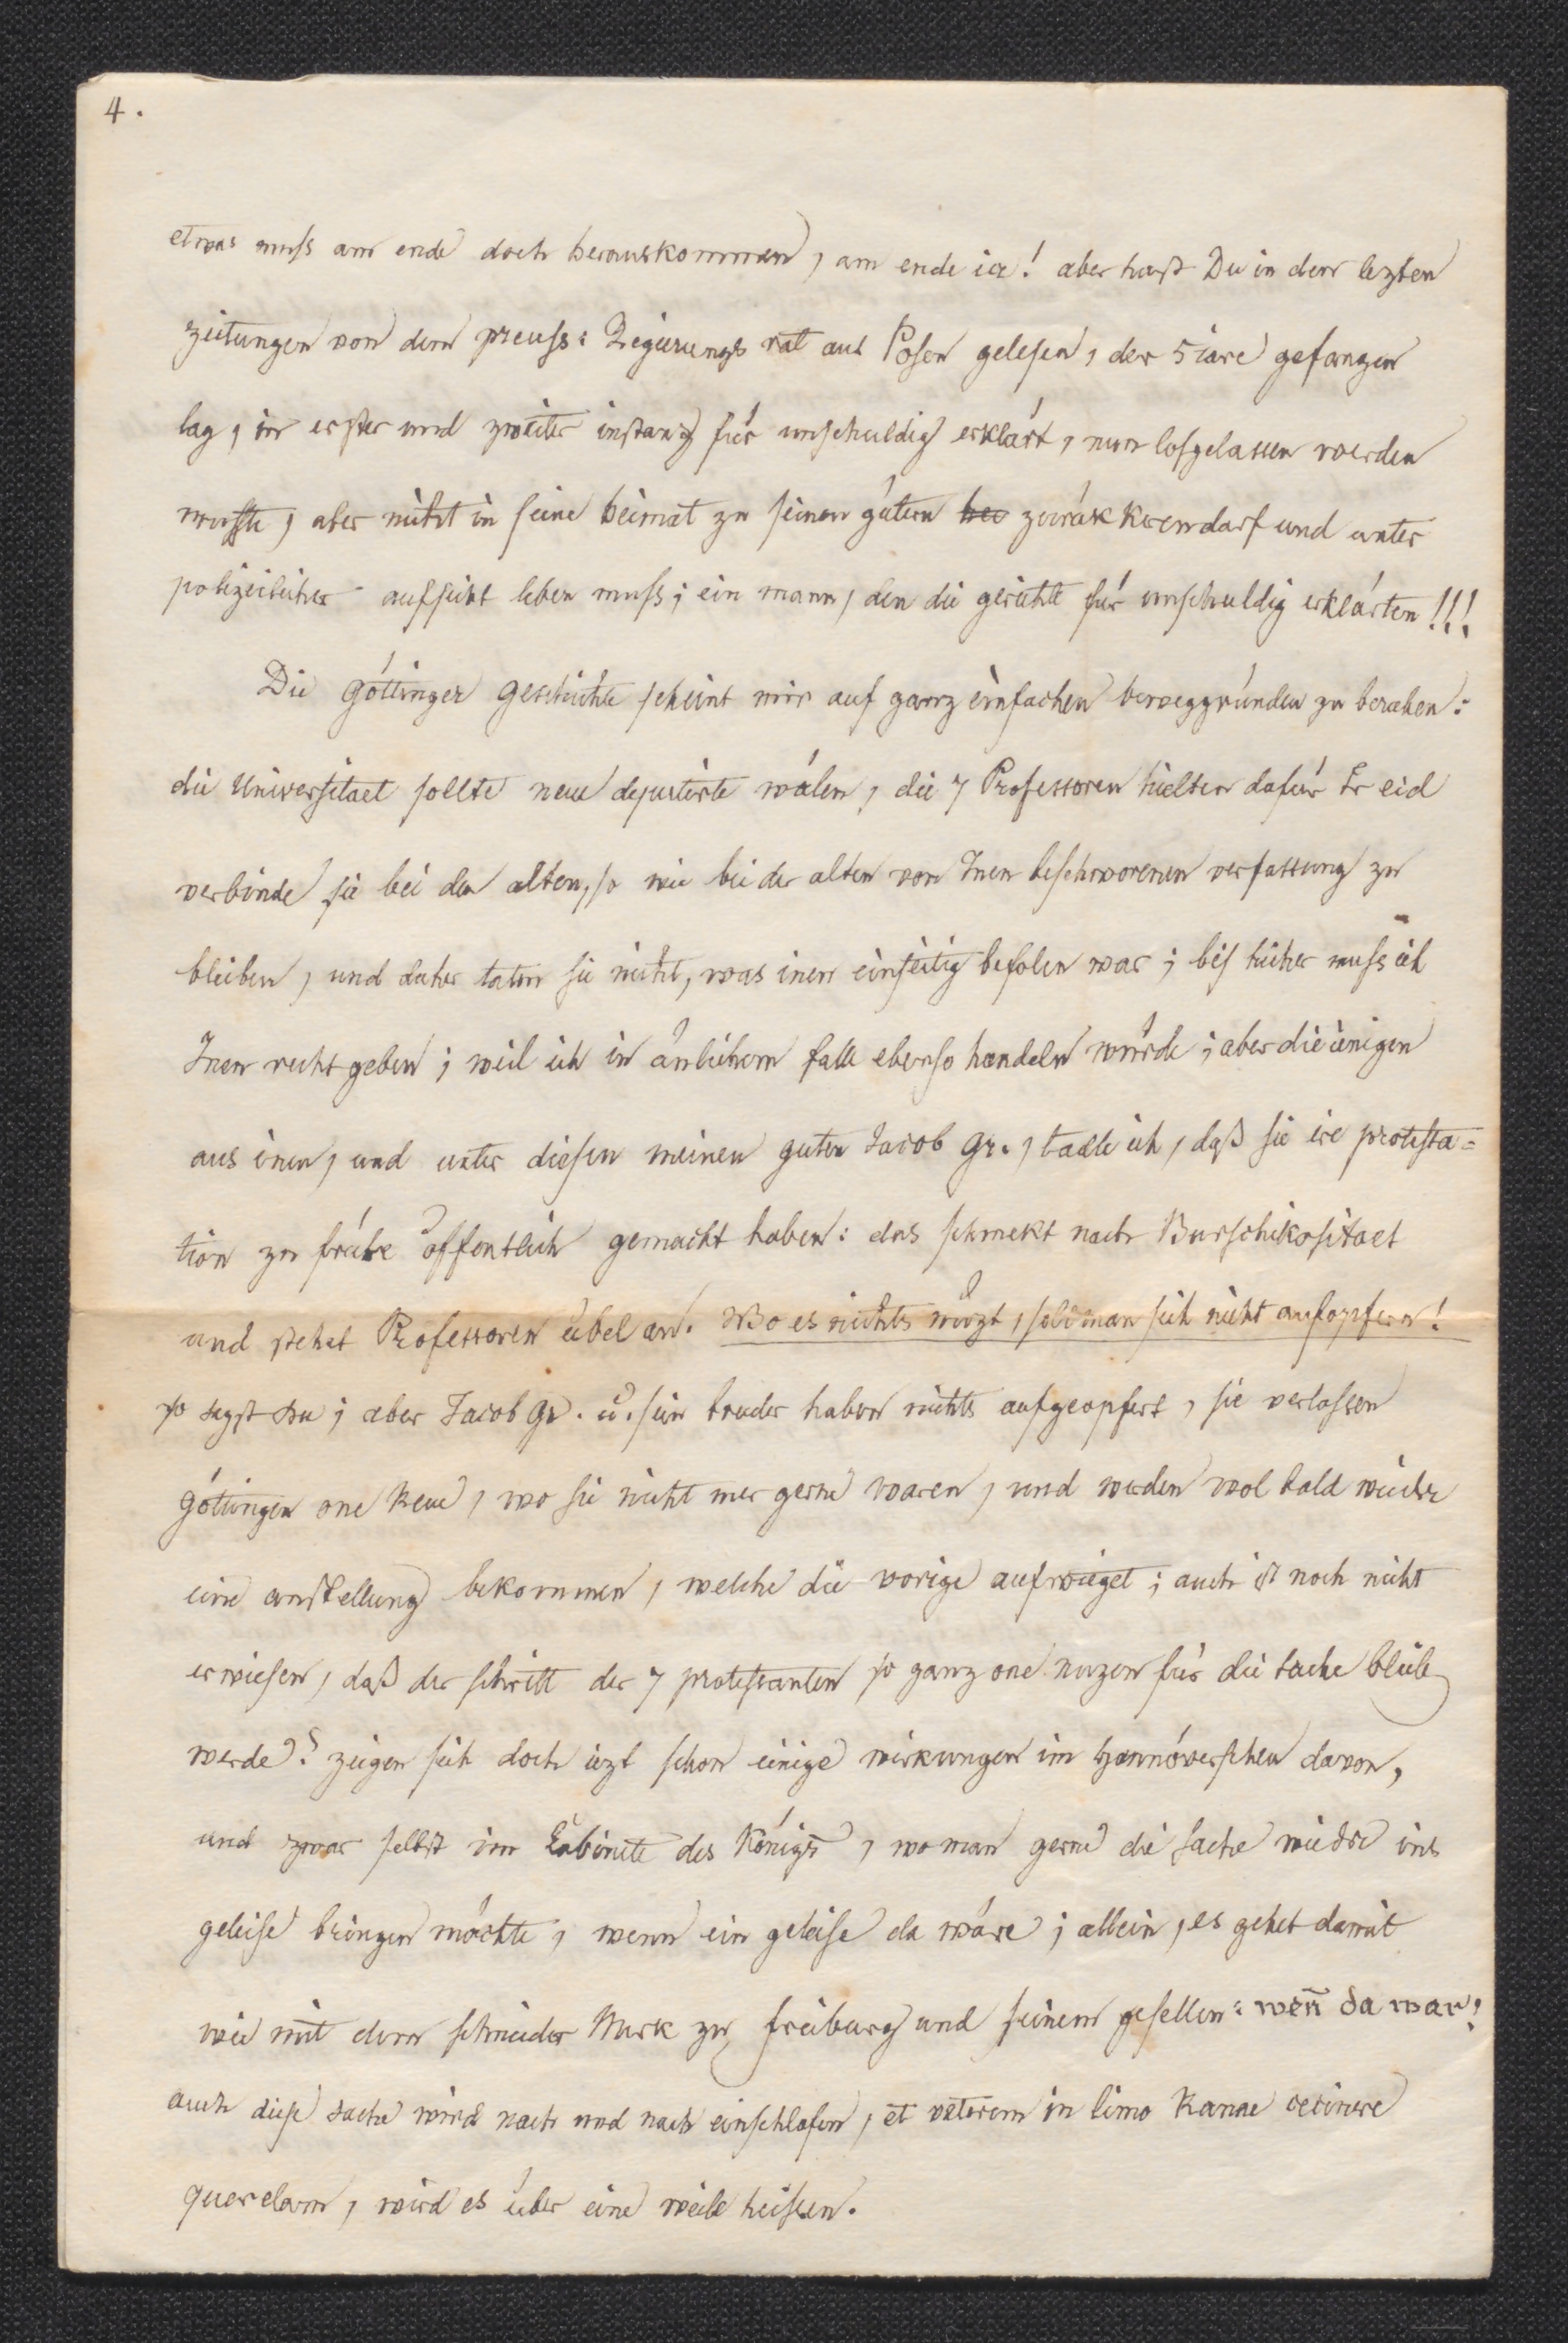 4.
etwas muſs am ende doch herauskommen, am ende ia! aber haſt Du in den lezten
zeitungen von dem preuſs: Regierungs rat aus Poſen geleſen, der 5 iare gefangen
lag, in erſter und zweiter inſtanz für unſchuldig erklärt, nun loſgelassen werden
muſste, aber nicht in ſeine heimat zu ſeinen gütern hei zurük keren darf und unter
polizeilicher aufſicht leben muſs; ein mann, den die gerichte für unſchuldig erklärten!!!
Die Göttinger Geschichte ſcheint mir auf ganz einfachen beweggründen zu beruhen:
die Univerſitaet ſollte neue deputirte wälen, die 7 Professoren hielten dafür Ir eid
verbinde ſie bei den alten, ſo wie bei der alten von Inen beſchworenen verfassung zu
bleiben, und daher taten ſie nicht, was inen einſeitig befolen war; biſ hieher muſs ich
Inen recht geben; weil ich in änlichem falle ebenſo handeln würde; aber dieienigen
aus inen, und unter dieſen meinen guten Jacob Gr., tadle ich, daß ſie ire proteſta=
tion zu frühe öffentlich gemacht haben: das ſchmekt nach Burſchikoſitaet
und stehet Professoren übel an. Wo es nichts nüzt, ſoll man ſich nicht aufopfern!
ſo sagst Du; aber Jacob Gr. u. ſein bruder haben nichts aufgeopfert, ſie verlaſsen
Göttingen one Reue, wo ſie nicht mer gerne waren, und werden wol bald wieder
eine anſtellung bekommen, welche die vorige aufwieget; auch iſt noch nicht
erwieſen, daß der ſchritt der 7 proteſtanten ſo ganz one nuzen für die sache bleiben
werde? zeigen ſich doch iezt ſchon einige wirkungen im Hannöverſchen davon,
und zwar ſelbſt im Cabinete des Königs, wo man gerne die ſache wieder ins
geleiſe bringen möchte, wenn ein geleiſe da wäre; allein, es gehet damit
wie mit dem ſchneider Murk zu freiburg und ſeinem geſellen: wen̄ da war!
auch dieſe sache wird nach und nach einſchlafen, et veterem in limo Ranae cecinere
querelam, wird es über eine weile heiſsen.